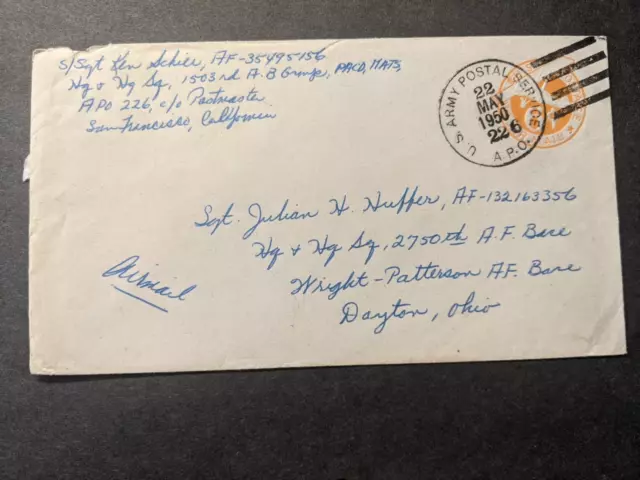 S/Sgt Ken Schier, AF-35495156
Hq & Hq Sq, 1503rd A.B Group, PACD, MATS,
APO 226, c/o Postmaster
San Francisco, California
U.S. ARMY POSTAL SERVICE
22
MAY
1950
226
A.P.O.
6
Sgt. Julian H. Huffer, AF-132163356
Hq & Hq Sq, 2750th A.F. Base
Wright-Patterson AF. Base
Dayton, Ohio
Airmail